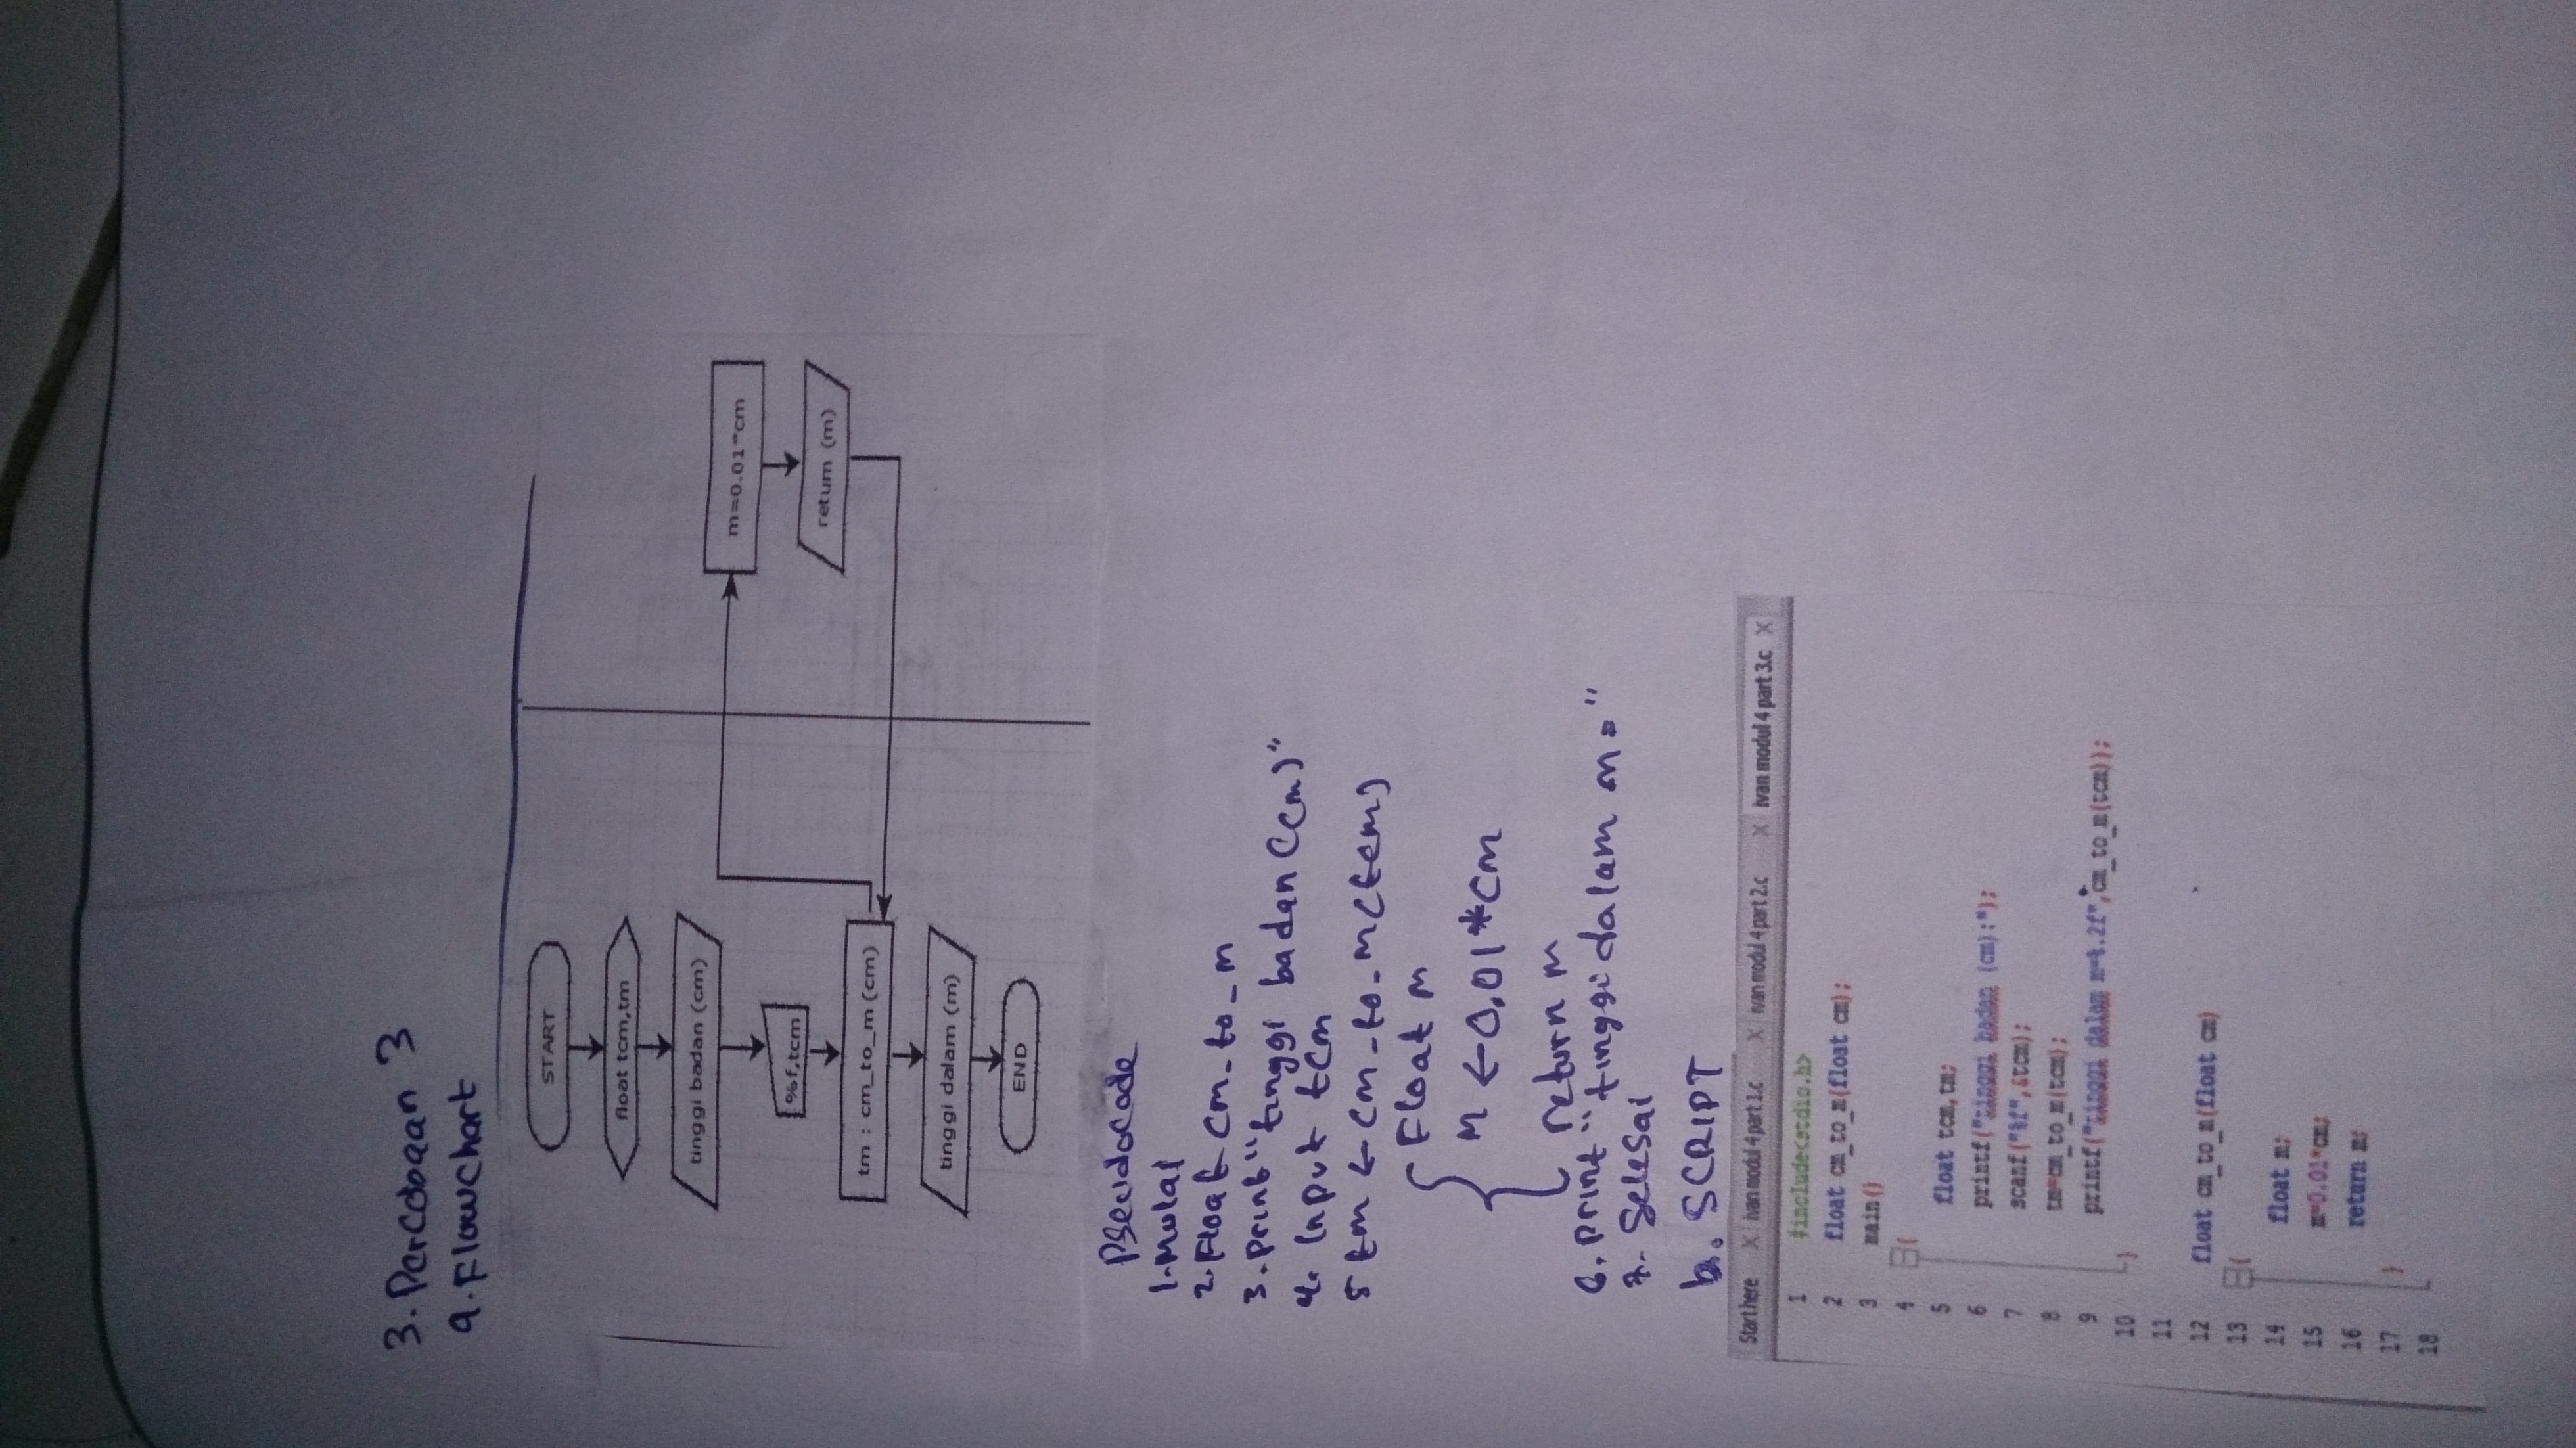 3. Percobaan 3
a. Flowchart
START
float tcm,tm
tinggi badan (cm)
%f,tcm
tm : cm_to_m (cm)
tinggi dalam (m)
END
m=0.01*cm
return (m)
Pseudocode
1. Mulai
2. Float cm_to_m
3. print "tinggi badan (cm)"
4. Input tcm
5 tm ← cm_to_m(tcm)
{ Float m
m ← 0,01*cm
return m
}
6. print "tinggi dalam m="
7. Selesai
b. SCRIPT
Start here X ivan modul 4 part 1.c X ivan modul 4 part 2.c X ivan modul 4 part 3.c X
1 #include<stdio.h>
2 float cm_to_m(float cm);
3 main()
4 {
5 float tcm,tm;
6 printf("tinggi badan (cm):");
7 scanf("%f",&tcm);
8 tm=cm_to_m(tcm);
9 printf("tinggi dalam m=%.2f",cm_to_m(tcm));
10 }
11
12 float cm_to_m(float cm)
13 {
14 float m;
15 m=0.01*cm;
16 return m;
17 }
18